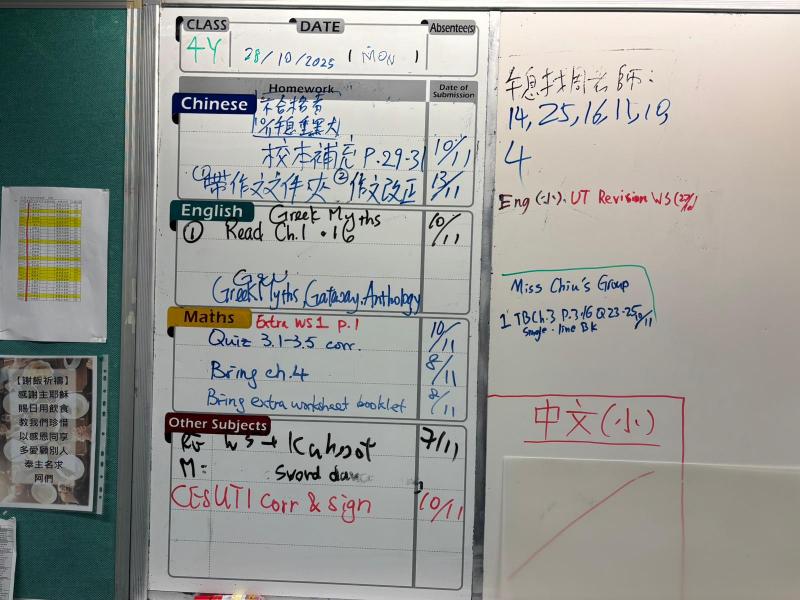 CLASS DATE Absentee(s)
4Y 28/10/2025 (MON)
Homework Date of Submission
Chinese
不合格者
校本補充 P.29-31 10/11
①帶作文文件夾 ②作文改正 13/11
English
Greek Myths
① Read Ch.1 - 16 10/11
Greek Myths, Gateway, Anthology
Maths
Extra WS1 p.1
Quiz 3.1-3.5 corr. 10/11
Bring ch.4 8/11
Bring extra worksheet booklet 8/11
Other Subjects
RE: WS → Kahoot 7/11
M: Sword
CES UT1 corr & sign 10/11
午息找周老師:
14, 25, 16, 11, 10,
4
Eng (小). UT Revision WS (27/
Miss Chiu's Group
1 TB Ch.3 P.3.16 Q 23-25 10/11
Single-line BK
中文(小)
【謝飯祈禱】
感謝主耶穌
賜日用飲食
教我們珍惜
以感恩同享
多愛顧別人
奉主名求
阿們